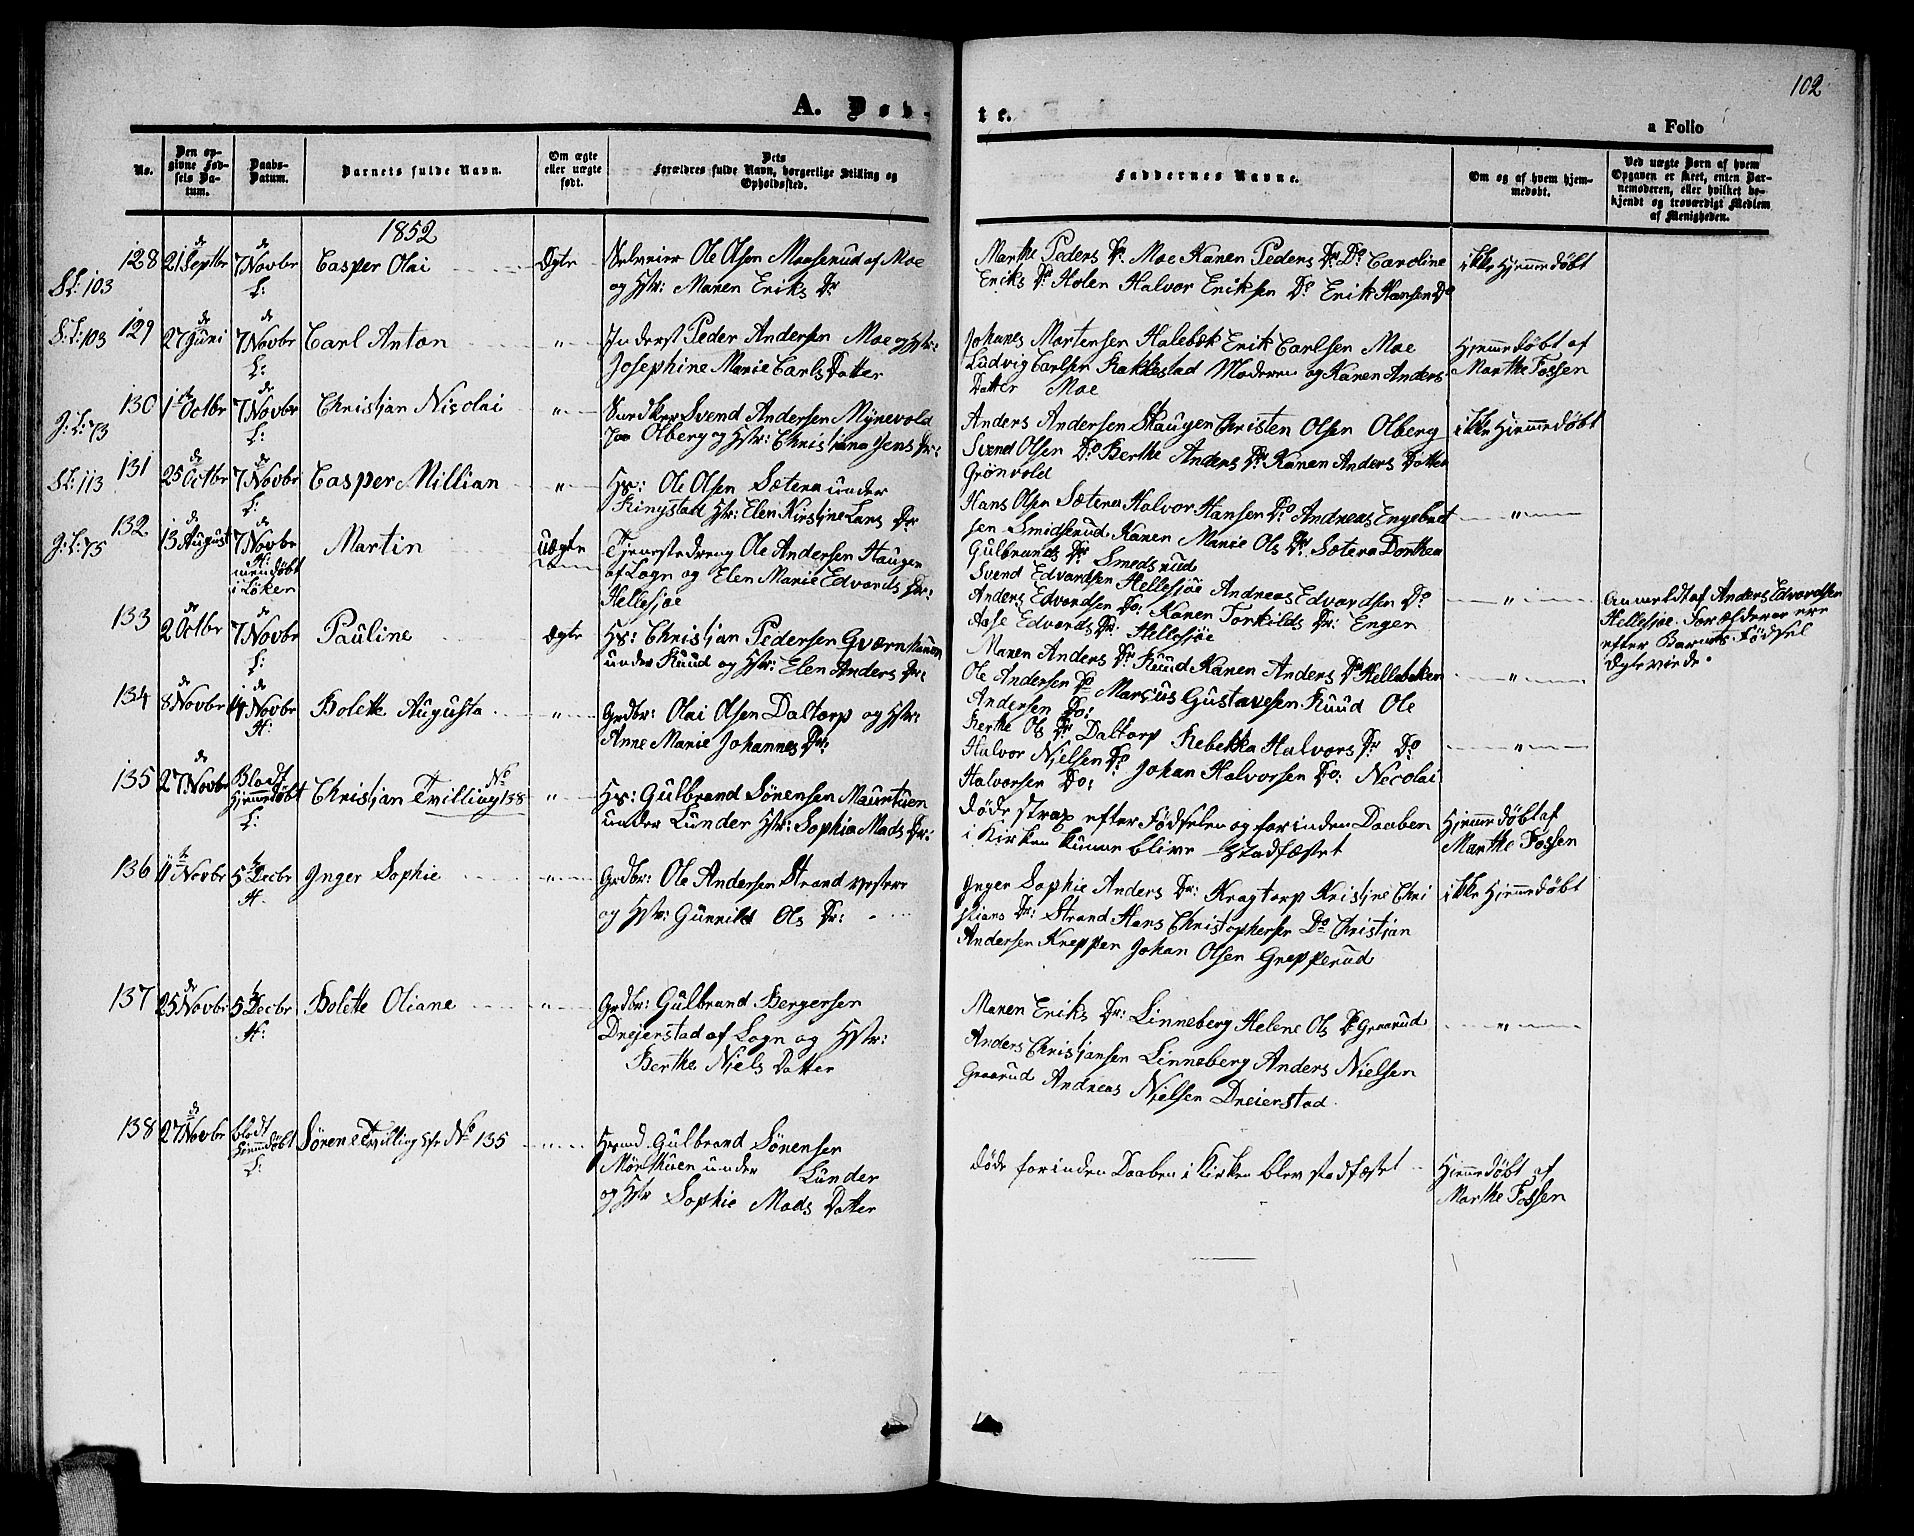 102
A. Døb-
te.
a Folio
No.
Den op-
givne Fød-
sels Da-
tum.
Daabs-
Datum.
Barnets fulde Navn.
Om ægte
eller uægte
født.
Dets
Forældres fulde Navn, borgerlige Stilling og
Opholdssted.
Faddernes Navne.
Om og af hvem hjem-
medøbt.
Ved uægte Børn af hvem
Opgaven er skeet, enten Bar-
nemoderen, eller hvilket be-
kjendt og troværdigt Medlem
af Menigheden.
1852
128 21 de Septbr 7 de Novbr Casper Olai Ægte Selveier Ole Olsen Maaserud af Moe
S.L: 103 L: og Hstr: Maren Eriks Dr
Marthe Peders Dr. Moe Karen Peders Dr Do Caroline
Eriks Dr Holen Halvor Eriksen Do Erik Hansen Do
ikke Hjemmedøbt
129 27 de Juni 7 de Novbr Carl Anton " Inderst Peder Andersen Moe og Hstr:
S:L:103 L: Josephine Marie Carls Datter
Johanes Martensen Halebæk Erik Carlsen Moe
Ludvig Carlsen Rakkestad Moderen og Karen Anders
Datter Moe
Hjemmedøbt af
Marthe Fossen
130 1 de Octbr 7 de Novbr Christjan Nicolai " Snedker Svend Andersen Myrevold
J:L:73 L: Olberg og Hstr: Christiana Jens Dr:
Anders Andersen Skaugen Christen Olsen Olberg
Svend Olsen Do Berthe Anders Dr Karen Anders Datter
Grønvold
ikke Hjemmedøbt
131 25 de Octbr 7 de Novbr Casper Millian " Hs: Ole Olsen Sætera under
S.L: 113 L: Ringstad Hstr: Elen Kirstine Lars Dr
Hans Olsen Sætera Halvor Hansen Do Andreas Engebret
sen Smidsrud Karen Marie Ols Dr. Sætera Dorthea
Gulbrands Dr Smedsrud
"
132 13 de August 7 de Novbr Martin Uægte Tjenestedreng Ole Andersen Haugen
J:L:75 H: af Sogn og Elen Marie Edvards Dr:
mendøbt Hellesjøe
i Løken
Svend Edvardsen Hellesjøe Andreas Edvardsen Do
Anders Edvardsen Do: Karen Torkilds Dr: Enger
Aase Edvards Dr: Hellesjøe
"
Anmeldt af Anders Edvardsen
Hellesjøe. Forældrene ere
efter Barnets Fødsel
Ægteviede.
133 2 de Octbr 7 de Novbr Pauline Ægte Hs: Christjan Pedersen Qværnhaugen
L: under Ruud og Hstr: Elen Anders Dr:
Maren Anders Dr Ruud Karen Anders Dr Hellebækken
Ole Andersen Do Marcus Gustavesen Ruud Ole
Andersen Do:
"
134 8 de Novbr 14 de Novbr Bolette Augusta " Grdbr: Olai Olsen Daltorp og Hstr:
H: Anne Marie Johannes Dr:
Berthe Ols Dr Daltorp Rebekka Halvors Dr. Do
Halvor Nielsen Do Johan Halvorsen Do: Necolai
Halvorsen Do:
"
135 27 de Novbr Blodt Christjan Tvilling No 138 " Hs: Gulbrand Sørensen Maurtuen
Hjemedøbt L: under Lunder Hstr: Sophia Mads Dr:
døde strax efter Fødselen og forinden Daaben
i Kirken kunne blive Stadfæstet
Hjemmedøbt af
Marthe Fossen
136 11 te Novbr 5 te Decbr Inger Sophie " Grdbr: Ole Andersen Strand vestere
H. og Hstr: Gunnild Ols Dr:
Inger Sophie Anders Dr: Kragtorp Kristine Chri
stians Dr: Strand Hans Christophersen Do Christjan
Andersen Kreppen Johan Olsen Grepperud
ikke Hjemmedøbt
137 25 de Novbr 5 te Decbr Bolette Oliane " Grdbr: Gulbrand Bergersen
H: Dreierstad af Sogn og Hstr:
Berthe Niels Datter
Maren Eriks Dr: Linneberg Helene Ols Dr Graarud
Anders Christjansen Linneberg Anders Nielsen
Graarud Andreas Nielsen Dreierstad.
"
138 27 de Novbr blodt Sørene Tvilling se No 135 " Hsmd. Gulbrand Sørensen
Hjemmdøbt L: Mørthuen under Lunder
og Hstr Sophie Mads Datter
døde forinden Daaben i Kirken blev stadfæstet
Hjemmedøbt af
Marthe Fossen